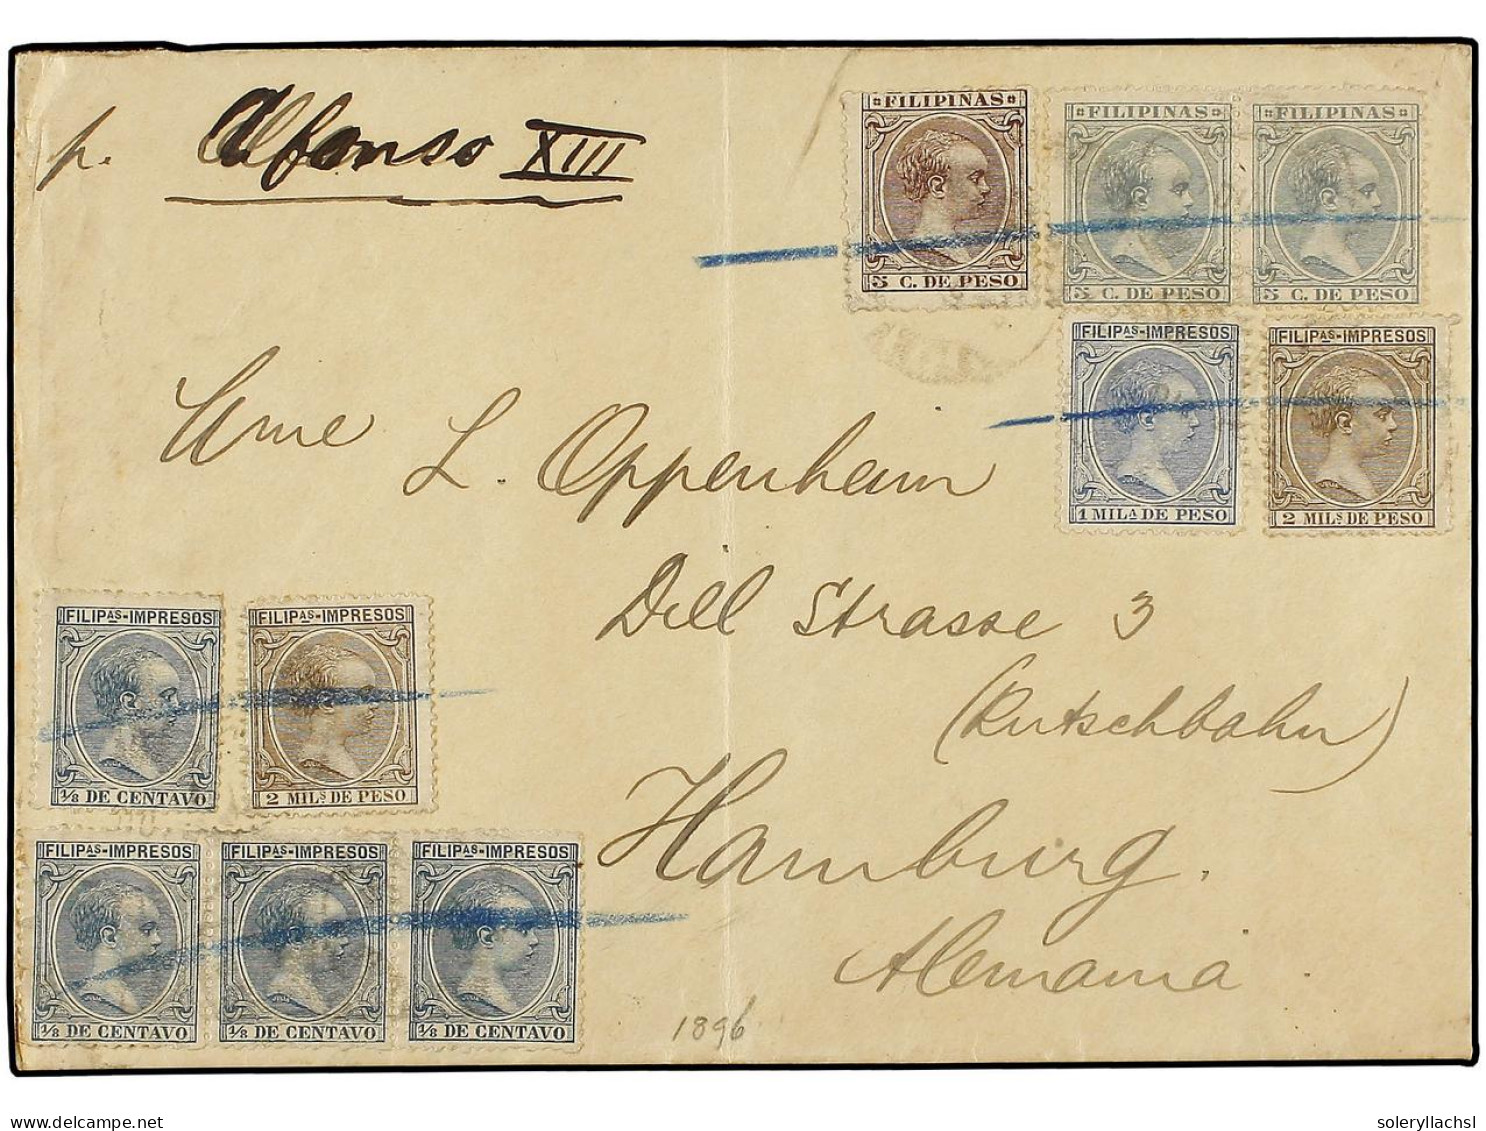 p. Alfonso XIII
FILIPINAS FILIPINAS FILIPINAS
5 C. DE PESO 5 C. DE PESO 5 C. DE PESO
FILIPAS-IMPRESOS FILIPAS-IMPRESOS
1 MILA DE PESO 2 MILS DE PESO
L. Oppenheim
Dill Strasse 3
(Rutschbahn)
Hamburg.
Alemania
FILIPAS-IMPRESOS FILIPAS-IMPRESOS
1/8 DE CENTAVO 2 MILS DE PESO
FILIPAS-IMPRESOS FILIPAS-IMPRESOS FILIPAS-IMPRESOS
1/8 DE CENTAVO 1/8 DE CENTAVO 1/8 DE CENTAVO
1896
www.delcampe.net
soleryllachsl